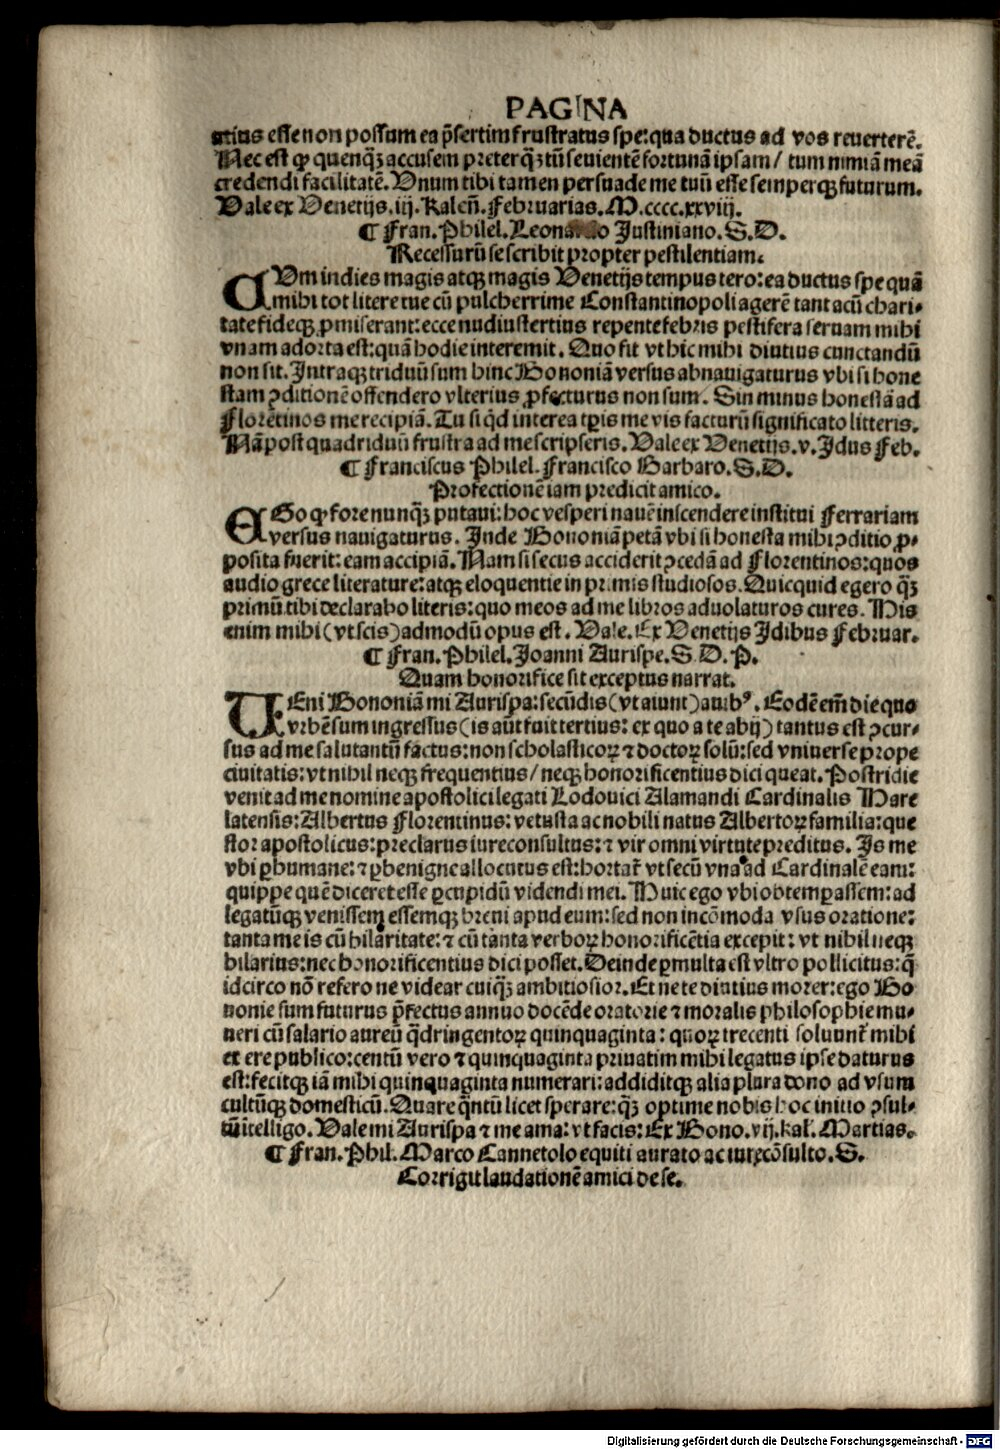 PAGINA
utius esse non possum ea p̃sertim frustratus spe: qua ductus ad vos reuerterẽ.
Nec est ꝙ quenqȝ accusem preterqȝ tũ seuientẽ fortunã ipsam / tum nimiã meã
credendi facilitatẽ. Vnum tibi tamen persuade me tuũ esse semperqȝ futurum.
Vale ex Venetijs. iij. Kaleñ. Februarias. M.cccc.xxviij.
¶ Fran. Philel. Leonardo Justiniano. S. D.
Recessurũ se scribit propter pestilentiam.
CVm indies magis atqȝ magis Venetijs tempus tero: ea ductus spe quã
mihi tot litere tue cũ pulcherrime Constantinopoli agerẽ tant acũ chari-
tate fideqȝ ꝓmiserant: ecce nudiustertius repente febris pestifera seruam mihi
vnam adorta est: quã hodie interemit. Quo fit vt hic mihi diutius cunctandũ
non sit. Intraqȝ triduũ sum hinc Bononiã versus abnauigaturus vbi si hone
stam ꝯditionẽ offendero vlterius ꝓfecturus non sum. Sin minus honestã ad
Florẽtinos me recipiã. Tu si qd interea tꝑis me vis facturũ significato litteris.
Nã post quadriduũ frustra ad me scripseris. Vale ex Venetijs. v. Idus Feb.
¶ Franciscus Philel. Francisco Barbaro. S. D.
Profectionẽ iam predicit amico.
EGo ꝙ fore nunqȝ putaui: hoc vesperi nauẽ inscendere institui Ferrariam
versus nauigaturus. Inde Bononiã petã vbi si honesta mihi ꝯditio ꝓ-
posita fuerit: eam accipiã. Nam si secus acciderit ꝯcedã ad Florentinos: quos
audio grece literature: atqȝ eloquentie in primis studiosos. Quicquid egero qȝ
primũ tibi declarabo literis: quo meos ad me libros aduolaturos cures. His
enim mihi (vt scis) admodũ opus est. Vale. Ex Venetijs Idibus Februar.
¶ Fran. Philel. Joanni Aurispe. S. D. P.
Quam honorifice sit exceptus narrat.
UEni Bononiã mi Aurispa: secũdis (vt aiunt) auibꝰ. Eodẽ em̃ die quo
vrbẽ sum ingressus (is aũt fuit tertius: ex quo a te abij) tantus est ꝯcur-
sus ad me salutantũ factus: non scholasticoꝝ ⁊ doctoꝝ solũ: sed vniuerse prope
ciuitatis: vt nihil neqȝ frequentius / neqȝ honorificentius dici queat. Postridie
venit ad me nomine apostolici legati Lodouici Alamandi Cardinalis Mare
latensis: Albertus Florentinus: vetusta ac nobili natus Albertoꝝ familia: que
stor apostolicus: preclarus iureconsultus: ⁊ vir omni virtute preditus. Is me
vbi ꝑhumane: ⁊ ꝑbenigne allocutus est: hortat̃ vt secũ vna ad Cardinalẽ eam:
quippe quẽ diceret esse ꝑcupidũ videndi mei. Huic ego vbi obtemꝑassem: ad
legatũqȝ venissem essemqȝ breui apud eum: sed non incõmoda vsus oratione:
tanta me is cũ hilaritate: ⁊ cũ tanta verboꝝ honorificẽtia excepit: vt nihil neqȝ
hilarius: nec honorificentius dici posset. Deinde ꝑmulta est vltro pollicitus: q̃
idcirco nõ refero ne videar cuiqȝ ambitiosior. Et ne te diutius morer: ego Bo
nonie sum futurus p̃fectus annuo docẽde oratorie ⁊ moralis philosophie mu-
neri cũ salario aureũ q̃dringentoꝝ quinquaginta: quoꝝ trecenti soluunt̃ mihi
ex ere publico: centũ vero ⁊ quinquaginta priuatim mihi legatus ipse daturus
est: fecitqȝ iã mihi quinquaginta numerari: addiditqȝ alia plura dono ad vsum
cultũqȝ domesticũ. Quare q̃ntũ licet sperare: qȝ optime nobis hoc initio ꝯsul-
tũ ĩtelligo. Vale mi Aurispa ⁊ me ama: vt facis: Ex Bono. vij. kaƚ. Martias.
¶ Fran. Phil. Marco Cannetolo equiti aurato ac iurecõsulto. S.
Corrigit laudationẽ amici de se.
Digitalisierung gefördert durch die Deutsche Forschungsgemeinschaft - DFG